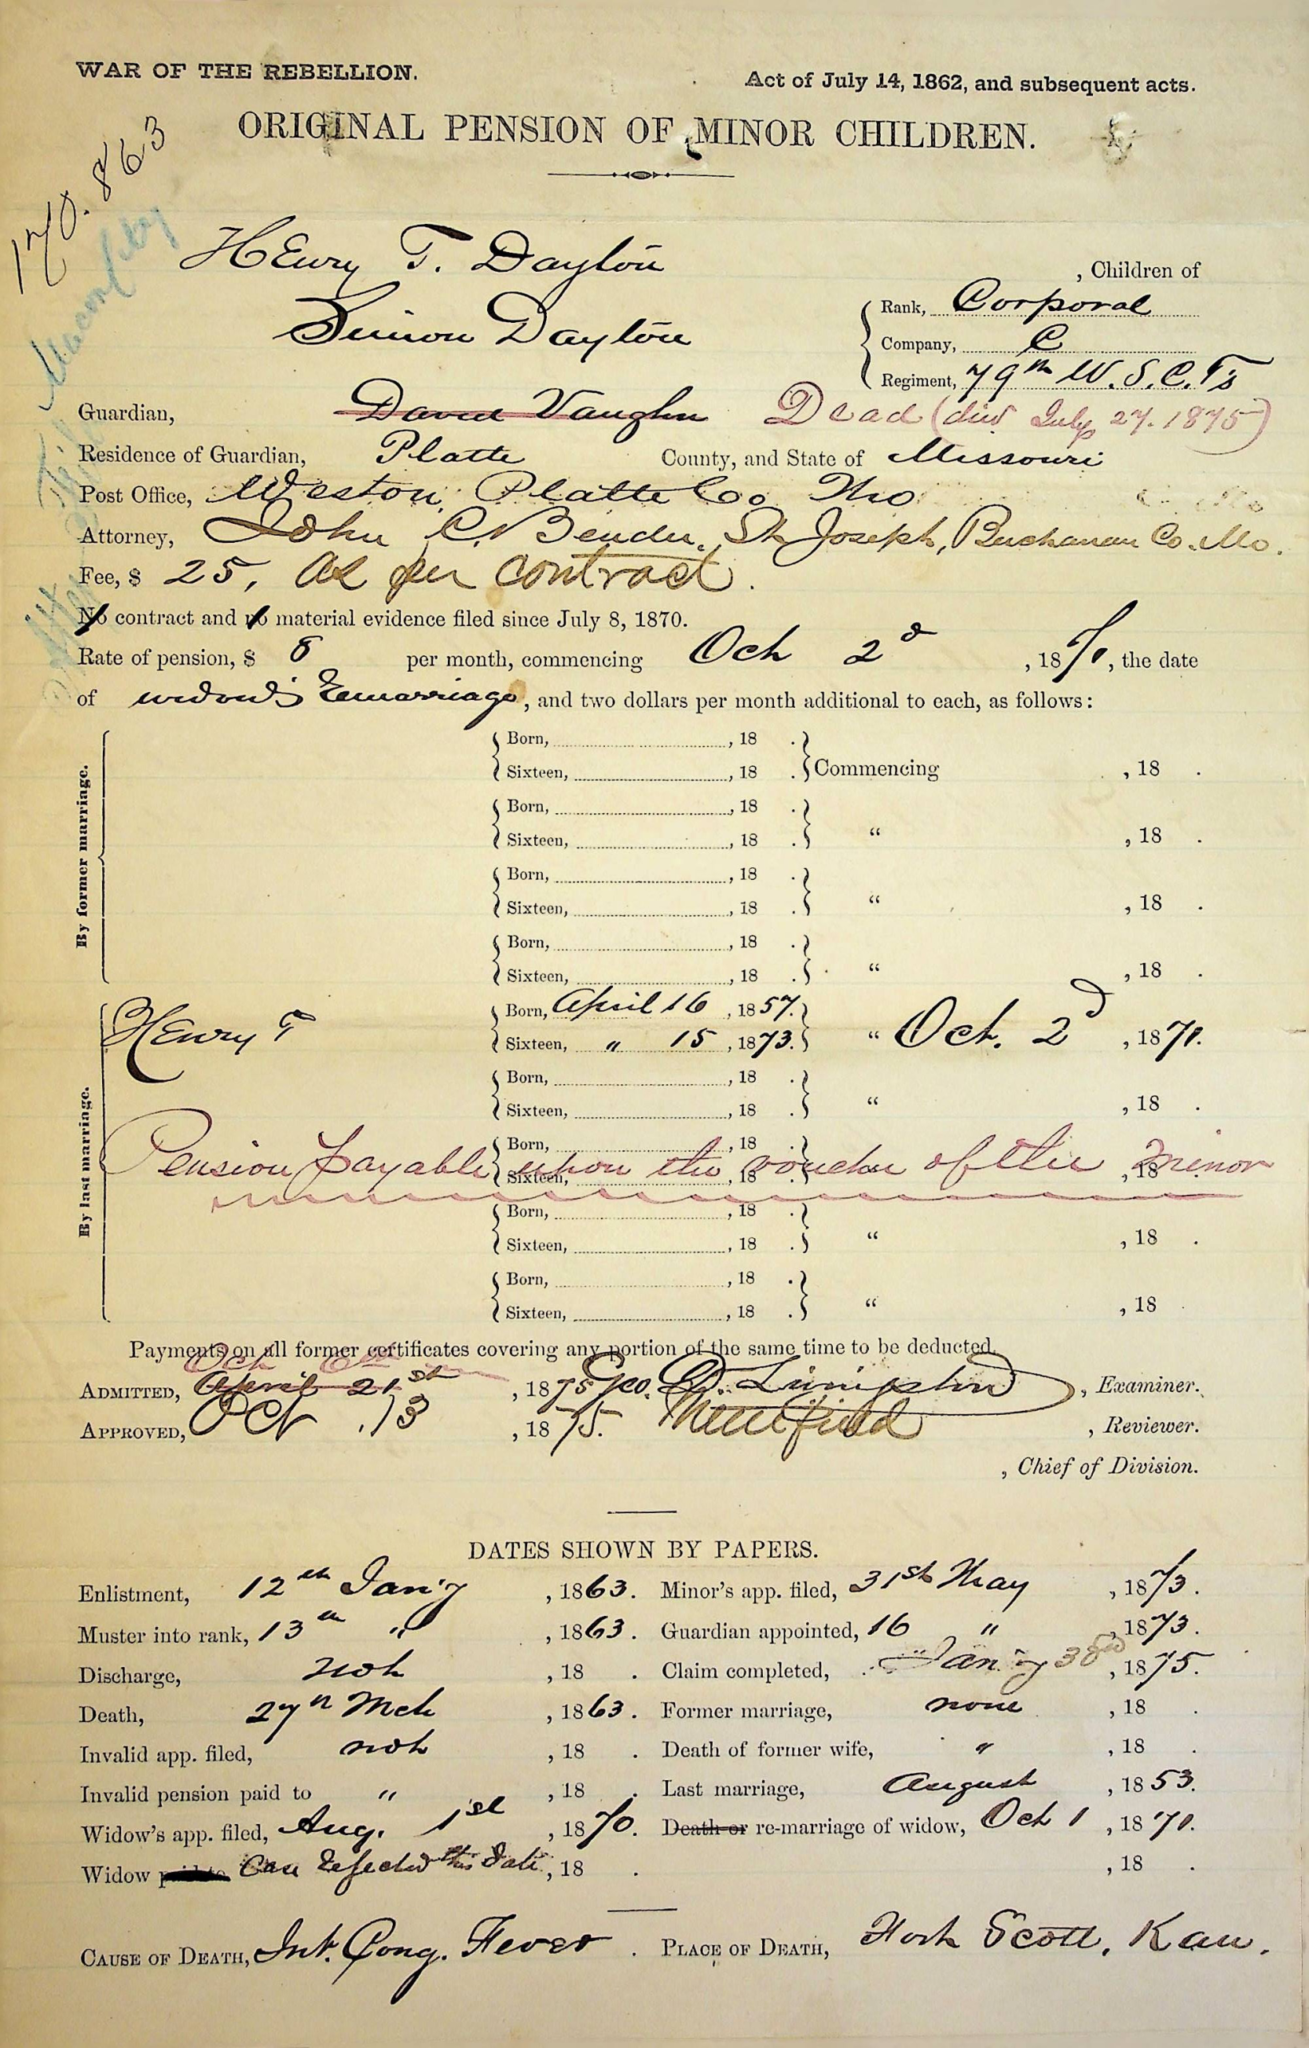 WAR OF THE REBELLION.
Act of July 14, 1862, and subsequent acts.
ORIGINAL PENSION OF MINOR CHILDREN.
170.863
Henry T. Dayton
, Children of
Simon Dayton
Rank, Corporal
Company, C
Regiment, 79th U.S.C.T's
Guardian, David Vaughn Dead (died July 27. 1875)
Residence of Guardian, Platte County, and State of Missouri
Post Office, Weston, Platte Co Mo
Attorney, John C. Bender, St Joseph, Buchanan Co. Mo.
Fee, $ 25, As per contract.
No contract and no material evidence filed since July 8, 1870.
Rate of pension, $ 8 per month, commencing Oct 2d , 1870, the date
of widow's remarriage, and two dollars per month additional to each, as follows:
By former marriage.
Born, , 18 .
Sixteen, , 18 . Commencing , 18 .
Born, , 18 .
Sixteen, , 18 . " , 18 .
Born, , 18 .
Sixteen, , 18 . " , 18 .
Born, , 18 .
Sixteen, , 18 . " , 18 .
By last marriage.
Henry T
Born, April 16 , 1857.
Sixteen, " 15 , 1873. " Oct. 2d , 1870.
Born, , 18 .
Sixteen, , 18 . " , 18 .
Born, , 18 .
Pension payable upon the voucher of the minor
Sixteen, , 18 , 18 .
Born, , 18 .
Sixteen, , 18 . " , 18 .
Born, , 18 .
Sixteen, , 18 . " , 18 .
Payments on all former certificates covering any portion of the same time to be deducted.
Oct
ADMITTED, April 21st , 1875 Geo. , Examiner.
APPROVED, Oct. 13 , 1875. , Reviewer.
, Chief of Division.
DATES SHOWN BY PAPERS.
Enlistment, 12th Jan'y , 1863. Minor's app. filed, 31st May , 1873.
Muster into rank, 13th " , 1863. Guardian appointed, 16 " , 1873.
Discharge, not , 18 . Claim completed, Jan'y , 1875.
Death, 27th Mch , 1863. Former marriage, none , 18 .
Invalid app. filed, not , 18 . Death of former wife, " , 18 .
Invalid pension paid to " , 18 . Last marriage, August , 1853.
Widow's app. filed, Aug. 1st , 1870. Death or re-marriage of widow, Oct 1 , 1870.
Widow paid to Case Rejected this Date , 18 . , 18 .
CAUSE OF DEATH, Int. Cong. Fever . PLACE OF DEATH, Fort Scott, Kan.